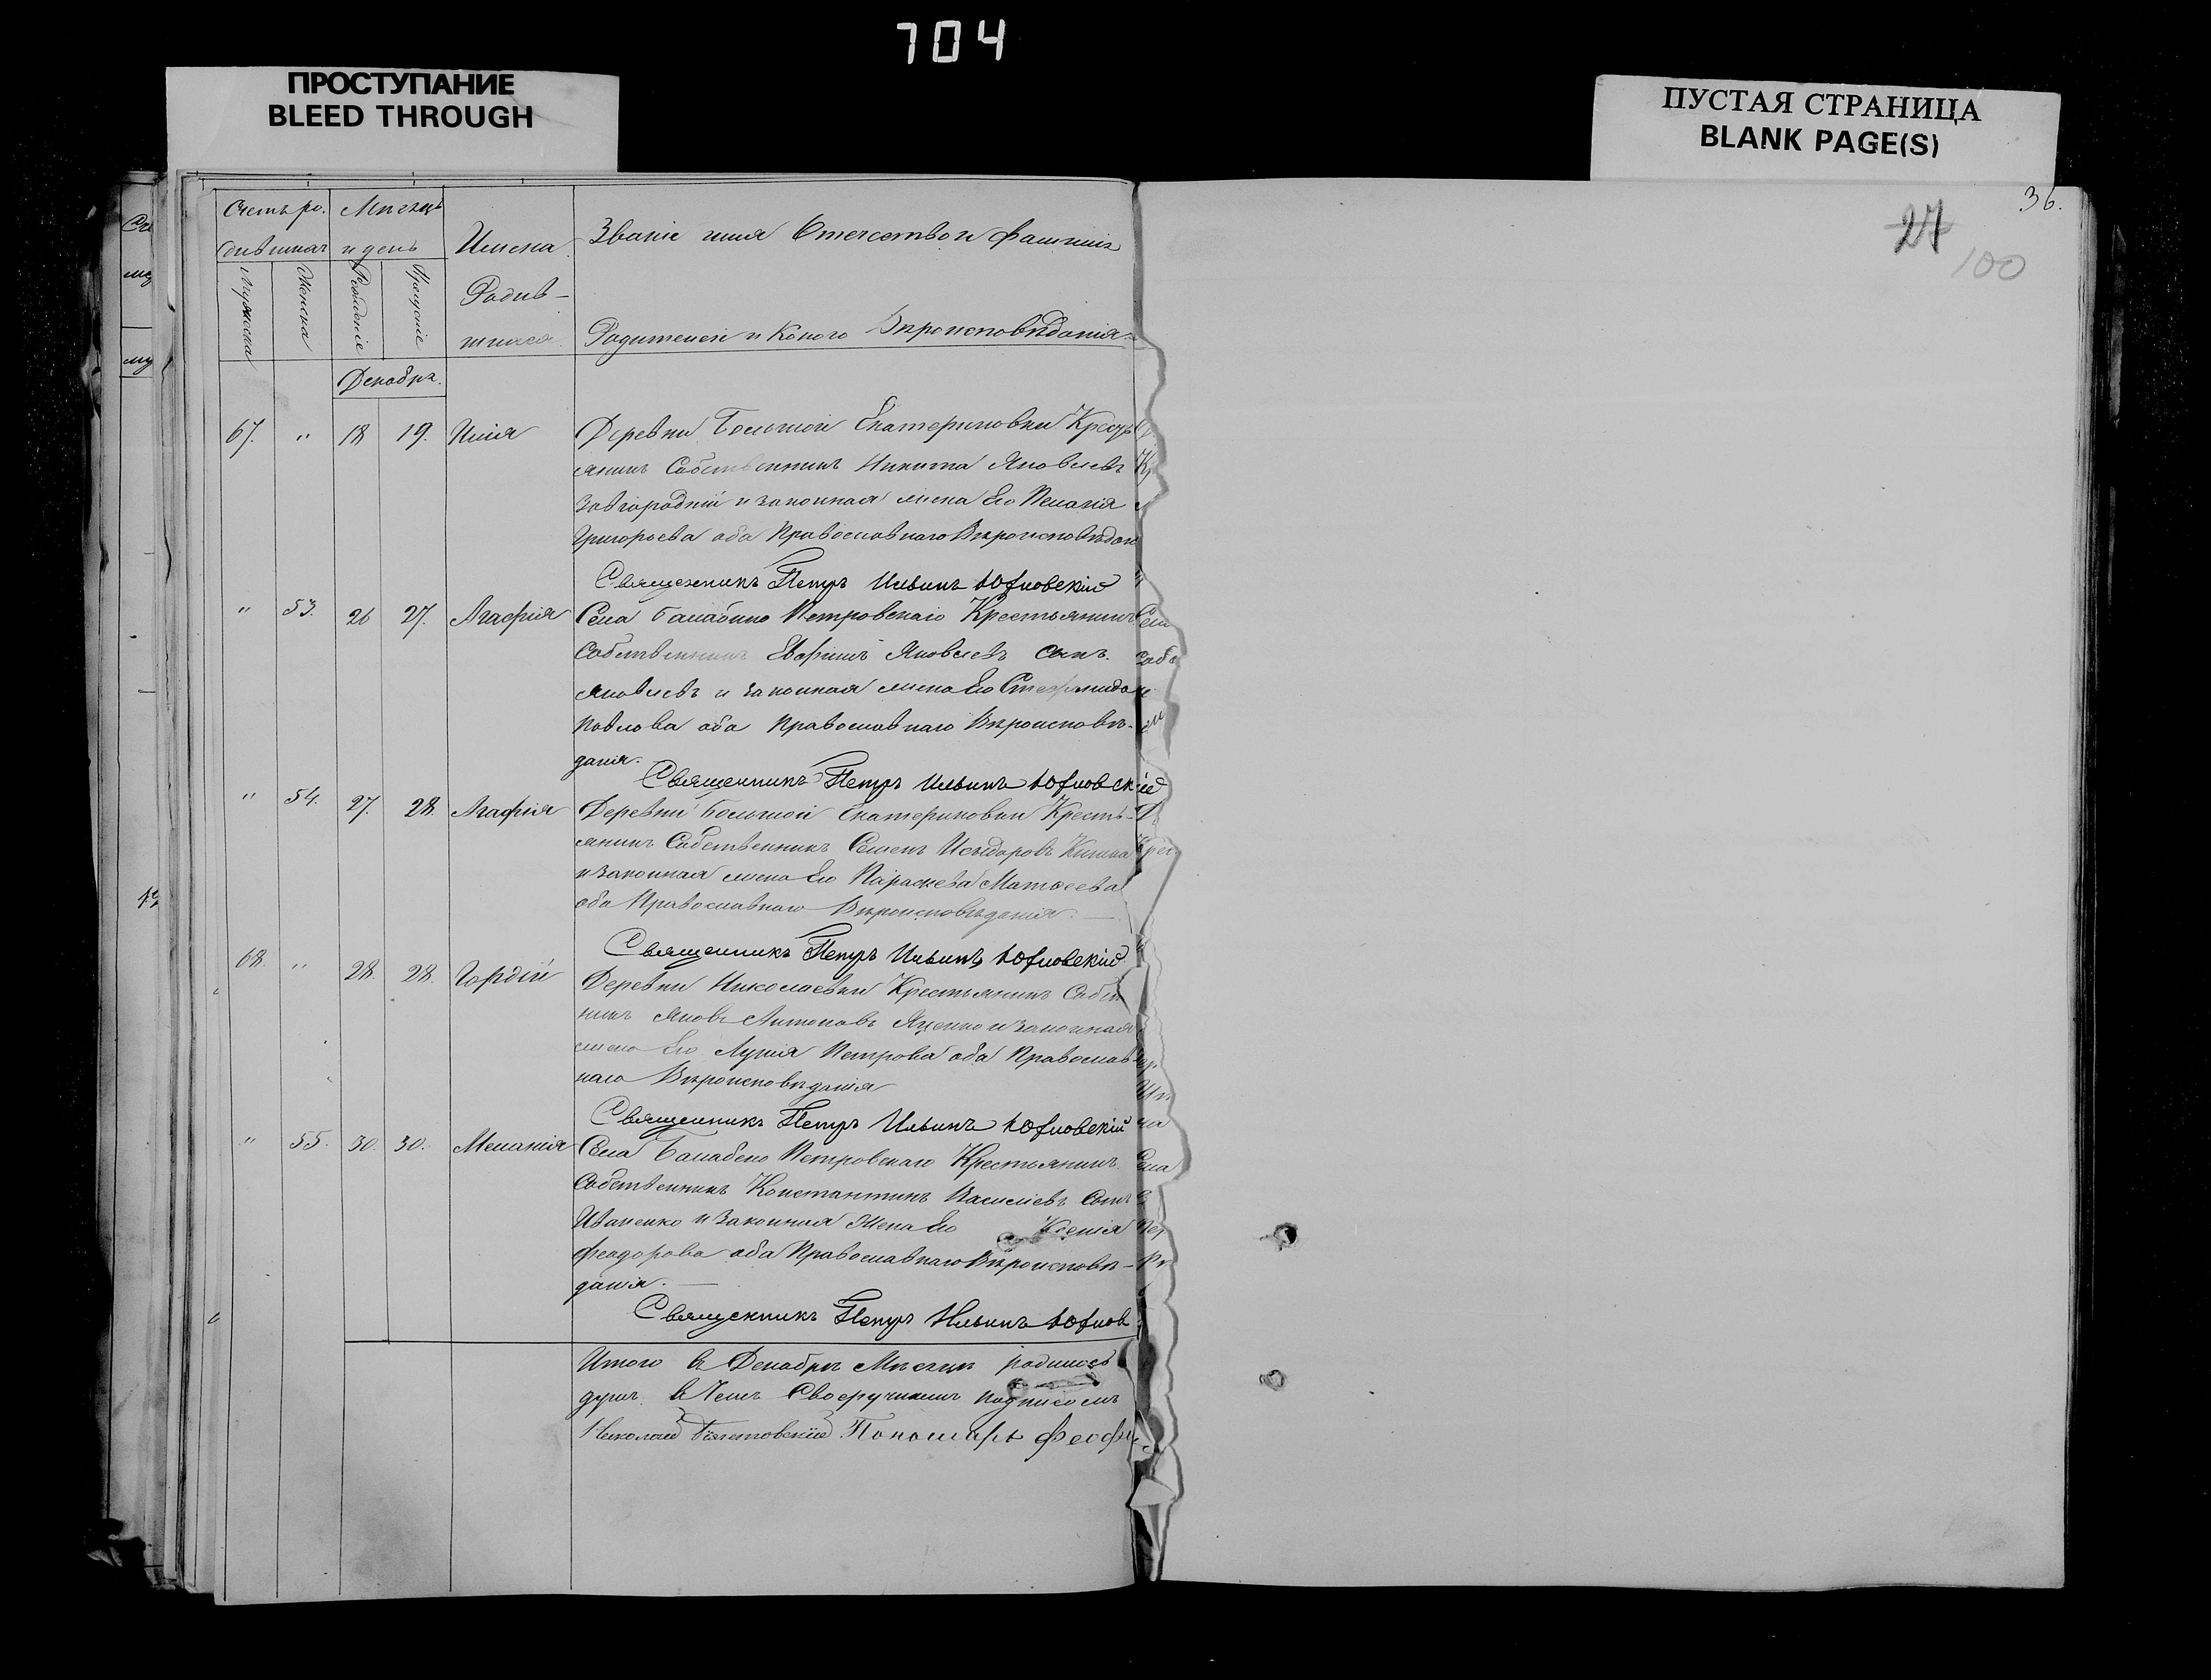 704
ПРОСТУПАНИЕ
BLEED THROUGH
ПУСТАЯ СТРАНИЦА
BLANK PAGE(S)
36.
27
100
Счетъ ро- Мѣсяцъ
дившихъ и день Имена Званіе имя Отечество и фамилія
Мужеска Женска Рожденіе Крещеніе Родив-
шихся Родителей и Какого Вѣроисповѣданія.
Декабрь.
67. " 18 19. Илія Деревни Большой Екатериновки Кресть
янинъ Собственникъ Никита Яковлевъ
Завгородній и законная жена Его Пелагія
Григорьева оба Православнаго Вѣроисповѣдан
Священникъ Петръ Ильинъ
" 53. 26 27. Агафія Села Балабино Петровскаго Крестьянинъ
Собственникъ Яковлевъ сынъ
Яковлевъ и законная жена Его
Павлова оба Православнаго Вѣроисповѣ-
данія.
Священникъ Петръ Ильинъ
" 54. 27. 28. Агафія Деревни Большой Екатериновки Кресть-
янинъ Собственникъ Семенъ Исидоровъ
и законная жена Его Параскева Матѳеева
оба Православнаго Вѣроисповѣданія.
Священникъ Петръ Ильинъ
68. " 28. 28. Гордій Деревни Николаевки Крестьянинъ Собст
никъ Яковъ Антоновъ Яценко и законная
жена Его Лукія Петрова оба Православ
наго Вѣроисповѣданія
Священникъ Петръ Ильинъ
" 55. 30. 30. Меланія Села Балабено Петровскаго Крестьянинъ
Собственникъ Константинъ Василіевъ Сынъ
Иваненко и Законная Жена Его Ксенія
Феодорова оба Православнаго Вѣроисповѣ-
данія.
Священникъ Петръ Ильинъ
Итого въ Декабрѣ Мѣсяцѣ родилось
душъ въ чемъ Своеручнымъ подписомъ
Николай Пономарь